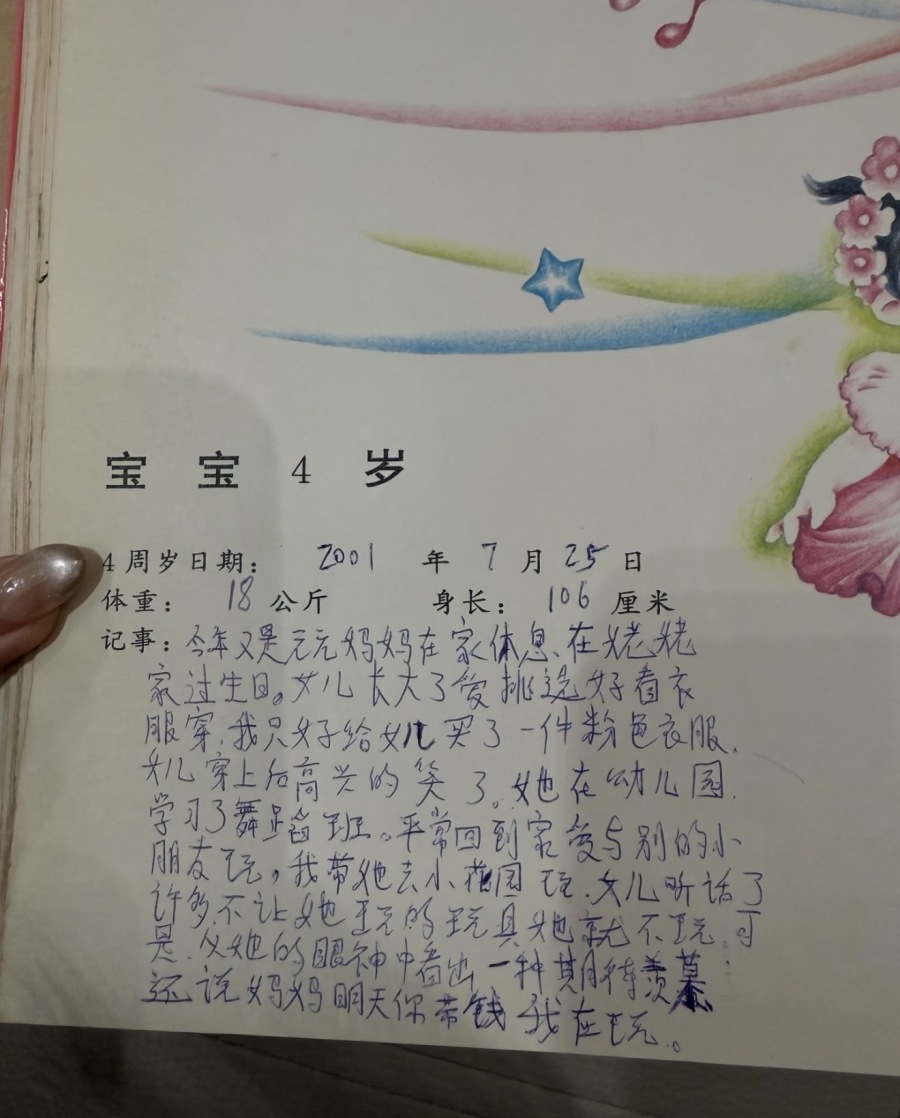 宝宝4岁
4周岁日期： 2001 年 7 月 25 日
体重： 18 公斤 身长： 106 厘米
记事：今年又是元元妈妈在家休息、在姥姥
家过生日。女儿长大了爱挑选好看衣
服穿.我只好给女儿买了一件粉色衣服.
女儿穿上后高兴的笑了。她在幼儿园.
学习了舞蹈班。平常回到家爱与别的小
朋友玩，我带她去小花园玩.女儿听话了
许多.不让她玩的玩具她就不玩.可
是.从她的眼神中看出一种期待羡慕
还说妈妈明天你带钱我在玩。